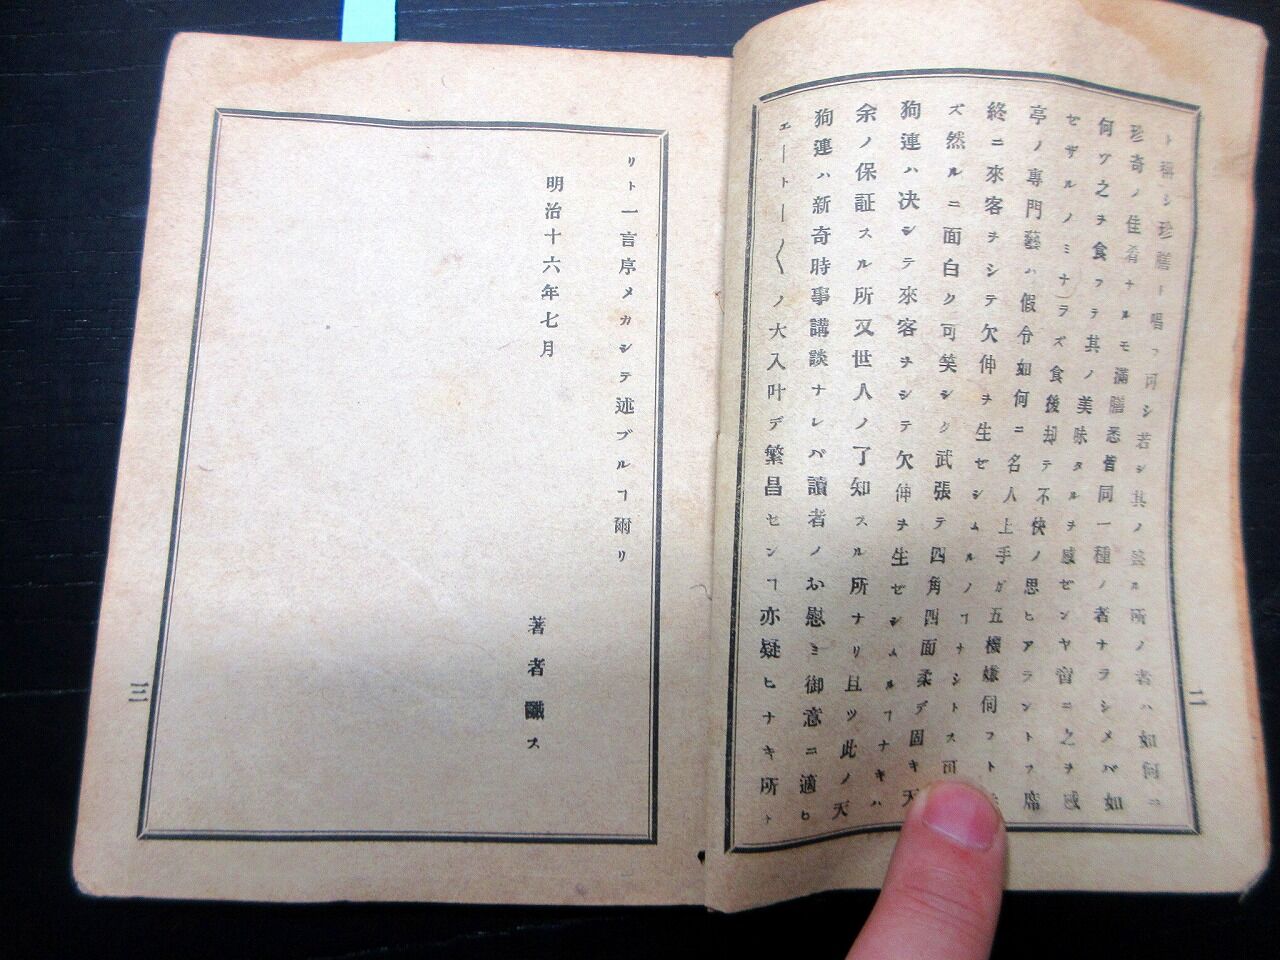 ト稱シ珍膳ト唱フ可シ若シ其ノ盛ル所ノ者ハ如何ニ
珍奇ノ佳肴ナルモ滿膳悉皆同一種ノ者ナラシメバ如
何ヅ之ヲ食フテ其ノ美味タルヲ感ゼンヤ啻ニ之ヲ感
セザルノミナラズ食後却テ不快ノ思ヒアラントス席
亭ノ專門藝ハ假令如何ニ名人上手ガ五機嫌伺フト
終ニ來客ヲシテ欠伸ヲ生ゼシムルノヿナシトス可
ズ然ルニ面白ク可笑シク武張テ四角四面柔デ固キ天
狗連ハ决シテ來客ヲシテ欠伸ヲ生ゼシムルヿナキハ
余ノ保証スル所又世人ノ了知スル所ナリ且ツ此ノ天
狗連ハ新奇時事講談ナレバ讀者ノお慰ミ御意ニ適ヒ
エートー〱ノ大入叶デ繁昌センヿ亦疑ヒナキ所ト
二
リト一言序メカシテ述ブルヿ爾リ
明治十六年七月
著者識ス
三